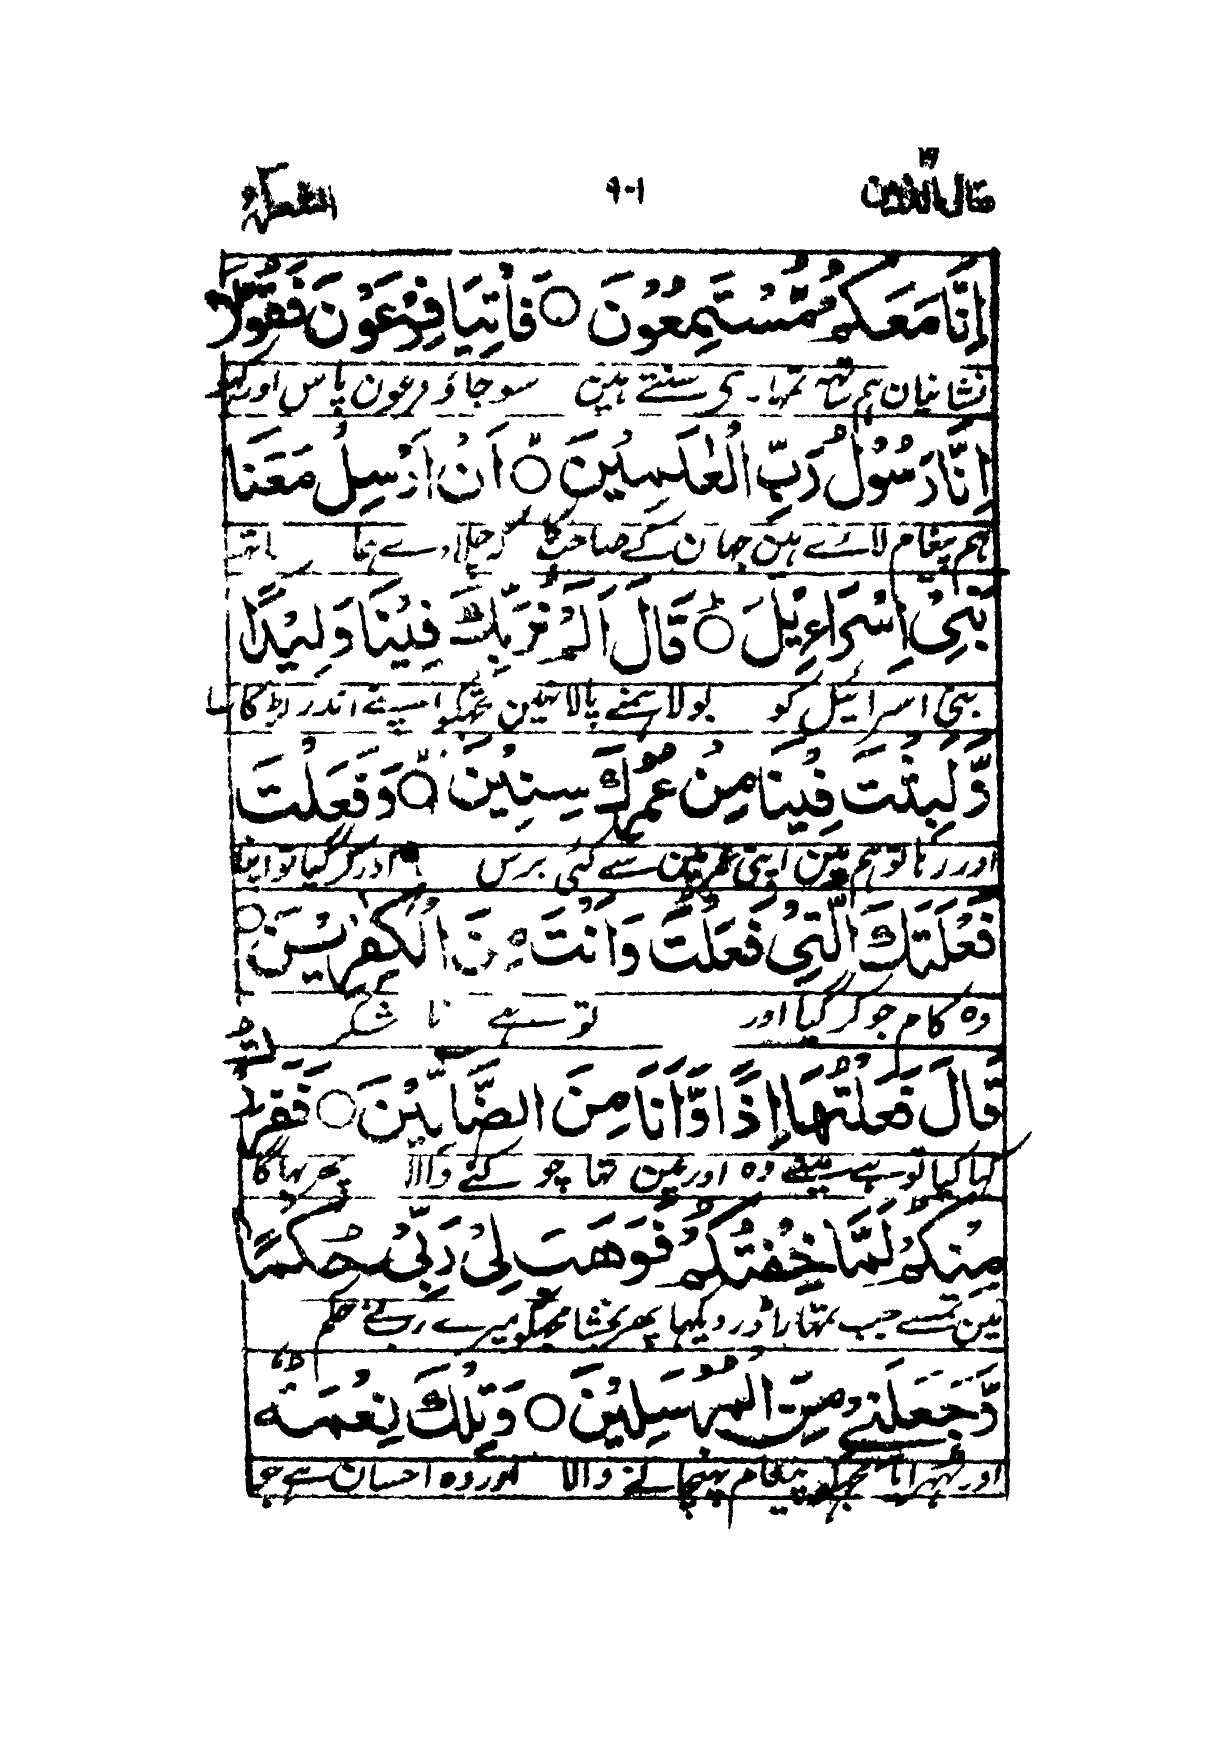 وقال الذین ۱۹ ۹۰۱ الشعراء
اِنَّا مَعَكُمْ مُّسْتَمِعُوْنَ ○ فَاْتِيَا فِرْعَوْنَ فَقُوْلَآ
نشانیان ہم ساتھ تمہاری سنتے ہین سو جاؤ فرعون پاس اور کہو
اِنَّا رَسُوْلُ رَبِّ الْعٰلَمِيْنَ ○ اَنْ اَرْسِلْ مَعَنَا
ہم پیغام لائے ہین جہان کے صاحب کا کہ چلاوے
بَنِيْٓ اِسْرَآءِيْلَ ○ قَالَ اَلَمْ نُرَبِّكَ فِيْنَا وَلِيْدًا
بنی اسرائیل کو بولا ہمنے پالا نہین تجھکو اپنے اندر لڑکا سا
وَّلَبِثْتَ فِيْنَا مِنْ عُمُرِكَ سِنِيْنَ ○ وَفَعَلْتَ
اور رہا تو ہم مین اپنی عمر مین سے کئی برس اور کر گیا تو اپنا
فَعْلَتَكَ الَّتِيْ فَعَلْتَ وَاَنْتَ مِنَ الْكٰفِرِيْنَ ○
وہ کام جو کر گیا اور تو ہے نا شکر
قَالَ فَعَلْتُهَآ اِذًا وَّاَنَا مِنَ الضَّآلِّيْنَ ○ فَفَرَرْتُ
کہا کیا تو ہے مینے وہ اور مین تھا چوکنے والا پھر بھاگا
مِنْكُمْ لَمَّا خِفْتُكُمْ فَوَهَبَ لِيْ رَبِّيْ حُكْمًا
مین تمسے جب تمہارا ڈر دیکھا پھر بخشا مجھکو میرے رب نے حکم
وَّجَعَلَنِيْ مِنَ الْمُرْسَلِيْنَ ○ وَتِلْكَ نِعْمَةٌ
اور ٹھہرایا مجھکو پیغام پہنچانے والا اور وہ احسان ہے جو